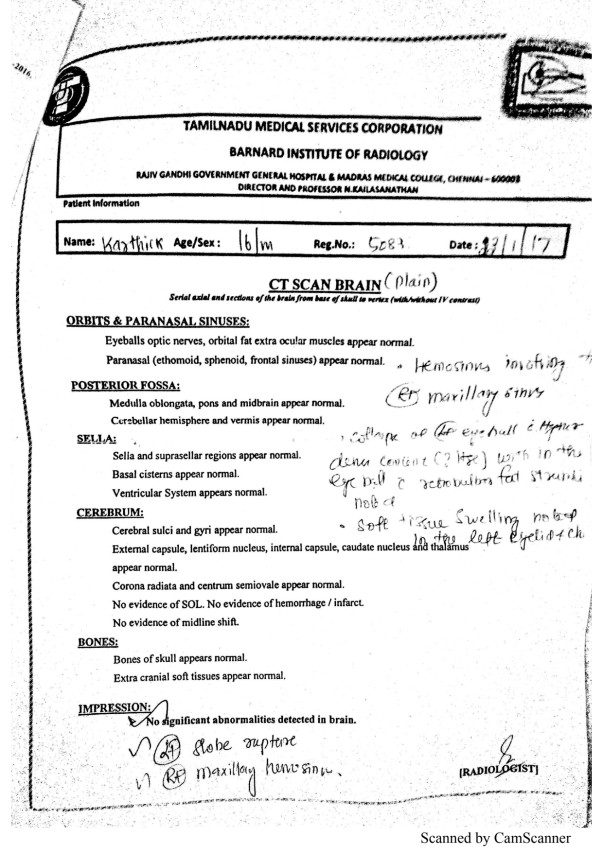 -2016.
TAMILNADU MEDICAL SERVICES CORPORATION
BARNARD INSTITUTE OF RADIOLOGY
RAJIV GANDHI GOVERNMENT GENERAL HOSPITAL & MADRAS MEDICAL COLLEGE, CHENNAI – 600003
DIRECTOR AND PROFESSOR N.KAILASANATHAN
Patient Information
Name: Karthick Age/Sex : 16/m Reg.No.: 5083 Date : /1/17
CT SCAN BRAIN (Plain)
Serial axial and sections of the brain from base of skull to vertex (with/without IV contrast)
ORBITS & PARANASAL SINUSES:
Eyeballs optic nerves, orbital fat extra ocular muscles appear normal.
Paranasal (ethomoid, sphenoid, frontal sinuses) appear normal.
• Hemosinus involving
Rt maxillary sinus
POSTERIOR FOSSA:
Medulla oblongata, pons and midbrain appear normal.
Cerebellar hemisphere and vermis appear normal.
• Collapse of eyeball c Hyper
dense content (? Hge) with in the
eye ball c retrobulbar fat
noted
• Soft tissue swelling noted
In the left eyelid + ch
SELLA:
Sella and suprasellar regions appear normal.
Basal cisterns appear normal.
Ventricular System appears normal.
CEREBRUM:
Cerebral sulci and gyri appear normal.
External capsule, lentiform nucleus, internal capsule, caudate nucleus and thalamus
appear normal.
Corona radiata and centrum semiovale appear normal.
No evidence of SOL. No evidence of hemorrhage / infarct.
No evidence of midline shift.
BONES:
Bones of skull appears normal.
Extra cranial soft tissues appear normal.
IMPRESSION:
No significant abnormalities detected in brain.
✓ Lt globe rupture
✓ Rt maxillary hemosinus.
[RADIOLOGIST]
Scanned by CamScanner